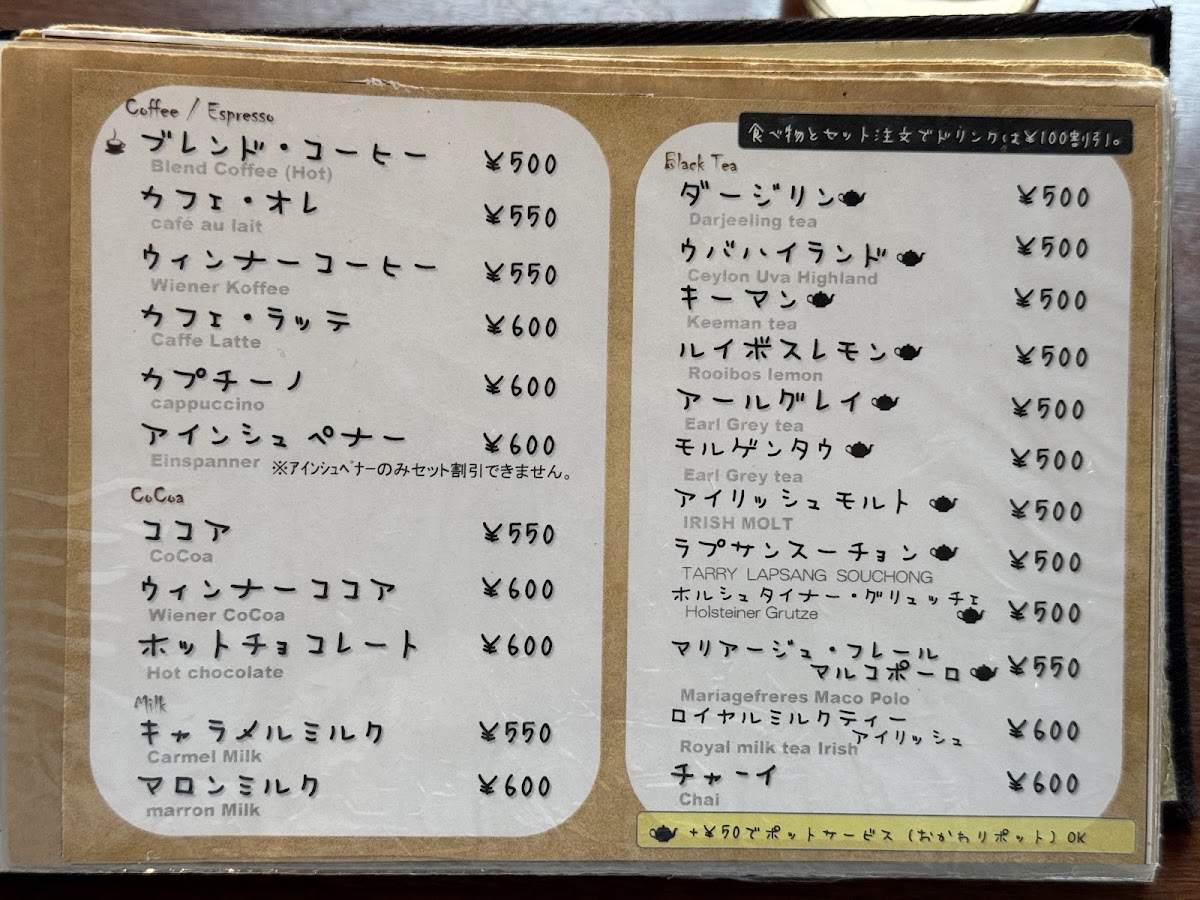 Coffee / Espresso
ブレンド・コーヒー ¥500
Blend Coffee (Hot)
カフェ・オレ ¥550
café au lait
ウィンナーコーヒー ¥550
Wiener Koffee
カフェ・ラッテ ¥600
Caffe Latte
カプチーノ ¥600
cappuccino
アインシュペナー ¥600
Einspanner ※アインシュペナーのみセット割引できません。
CoCoa
ココア ¥550
CoCoa
ウィンナーココア ¥600
Wiener CoCoa
ホットチョコレート ¥600
Hot chocolate
Milk
キャラメルミルク ¥550
Carmel Milk
マロンミルク ¥600
marron Milk
食べ物とセット注文でドリンクは¥100割引。
Black Tea
ダージリン ¥500
Darjeeling tea
ウバハイランド ¥500
Ceylon Uva Highland
キーマン ¥500
Keeman tea
ルイボスレモン ¥500
Rooibos lemon
アールグレイ ¥500
Earl Grey tea
モルゲンタウ ¥500
Earl Grey tea
アイリッシュモルト ¥500
IRISH MOLT
ラプサンスーチョン ¥500
TARRY LAPSANG SOUCHONG
ホルシュタイナー・グリュッチェ ¥500
Holsteiner Grutze
マリアージュ・フレール
マルコポーロ ¥550
Mariagefreres Maco Polo
ロイヤルミルクティー
アイリッシュ ¥600
Royal milk tea Irish
チャーイ ¥600
Chai
+¥50でポットサービス(おかわりポット)OK